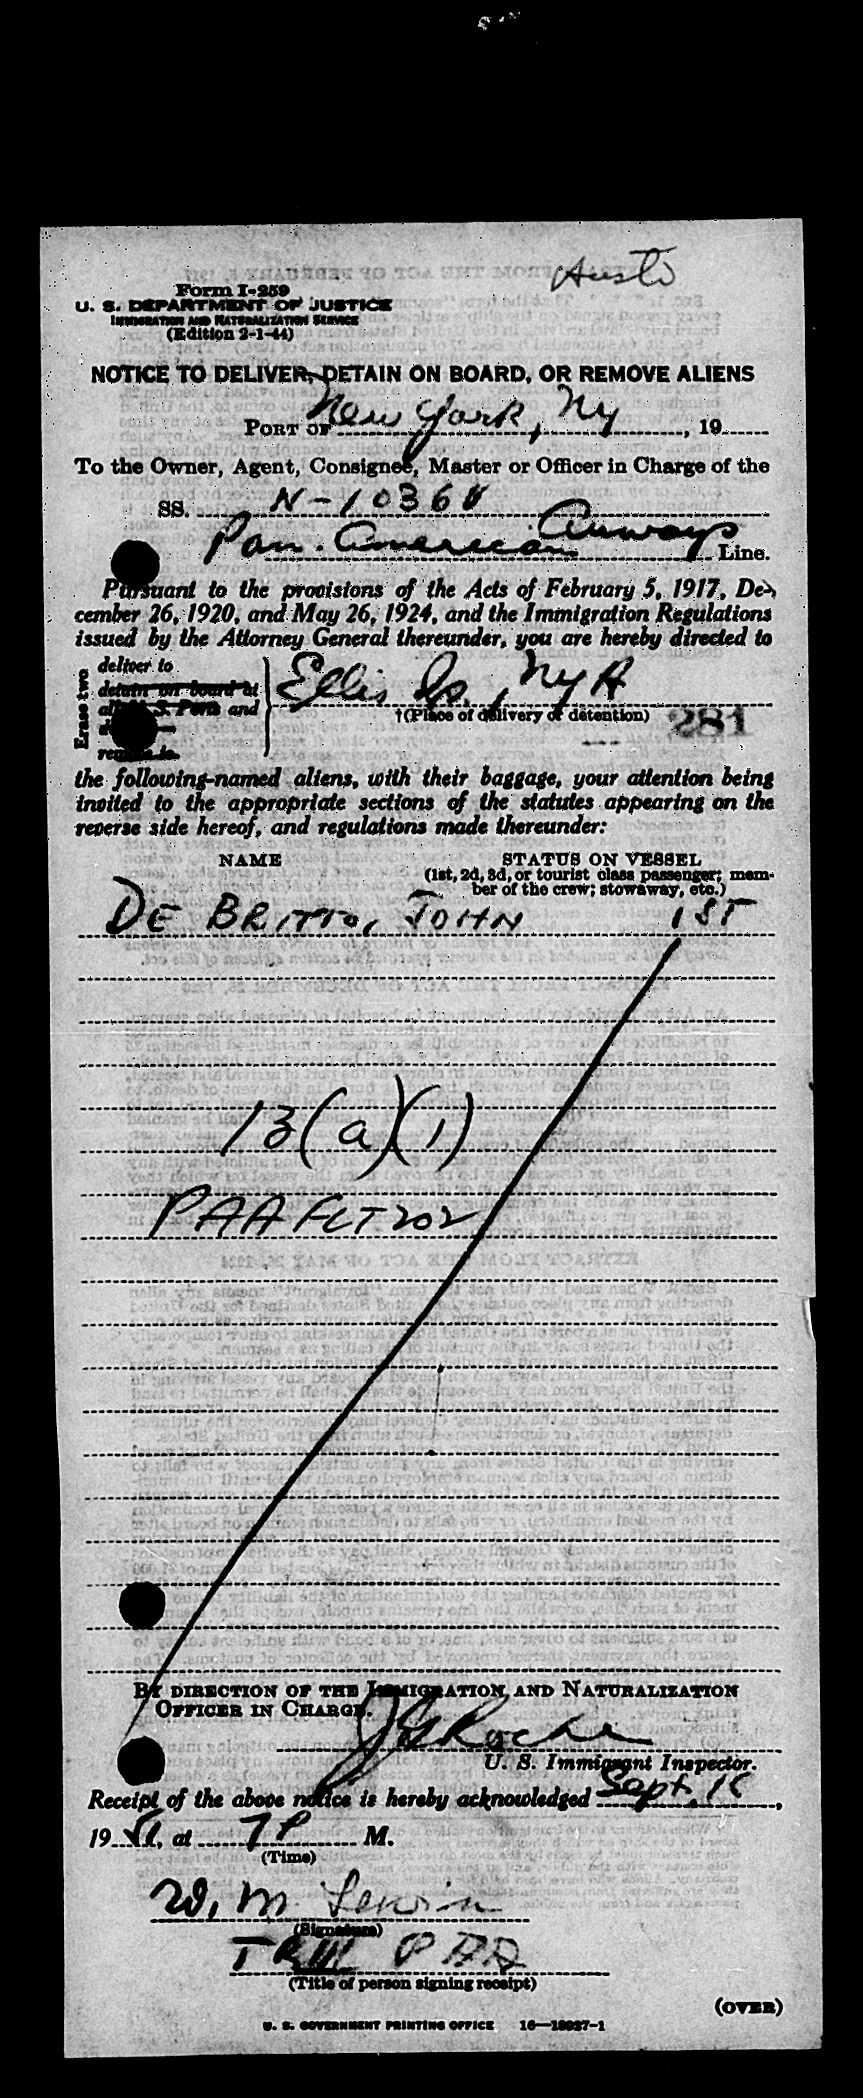 Form I-259
U. S. DEPARTMENT OF JUSTICE
IMMIGRATION AND NATURALIZATION SERVICE
(Edition 2-1-44)
NOTICE TO DELIVER, DETAIN ON BOARD, OR REMOVE ALIENS
PORT OF New York, Ny, 19
To the Owner, Agent, Consignee, Master or Officer in Charge of the
SS. N-1036V
Pan. American Airways Line.
Pursuant to the provisions of the Acts of February 5, 1917, De-
cember 26, 1920, and May 26, 1924, and the Immigration Regulations
issued by the Attorney General thereunder, you are hereby directed to
Erase two
deliver to
detain on board at
all U. S. Ports and
remove to
Ellis Is., Ny H
†(Place of delivery or detention)
281
the following-named aliens, with their baggage, your attention being
invited to the appropriate sections of the statutes appearing on the
reverse side hereof, and regulations made thereunder:
NAME STATUS ON VESSEL
(1st, 2d, 3d, or tourist class passenger; mem-
ber of the crew; stowaway, etc.)
DE BRITTO, JOHN 1ST
13(a)(1)
PAA FLT 202
BY DIRECTION OF THE IMMIGRATION AND NATURALIZATION
OFFICER IN CHARGE.
Roche
U. S. Immigrant Inspector.
Receipt of the above notice is hereby acknowledged Sept.
19 51, at 7 P M.
(Time)
W. M.
(Signature)
PAA
(Title of person signing receipt)
(OVER)
U. S. GOVERNMENT PRINTING OFFICE 16—18927-1